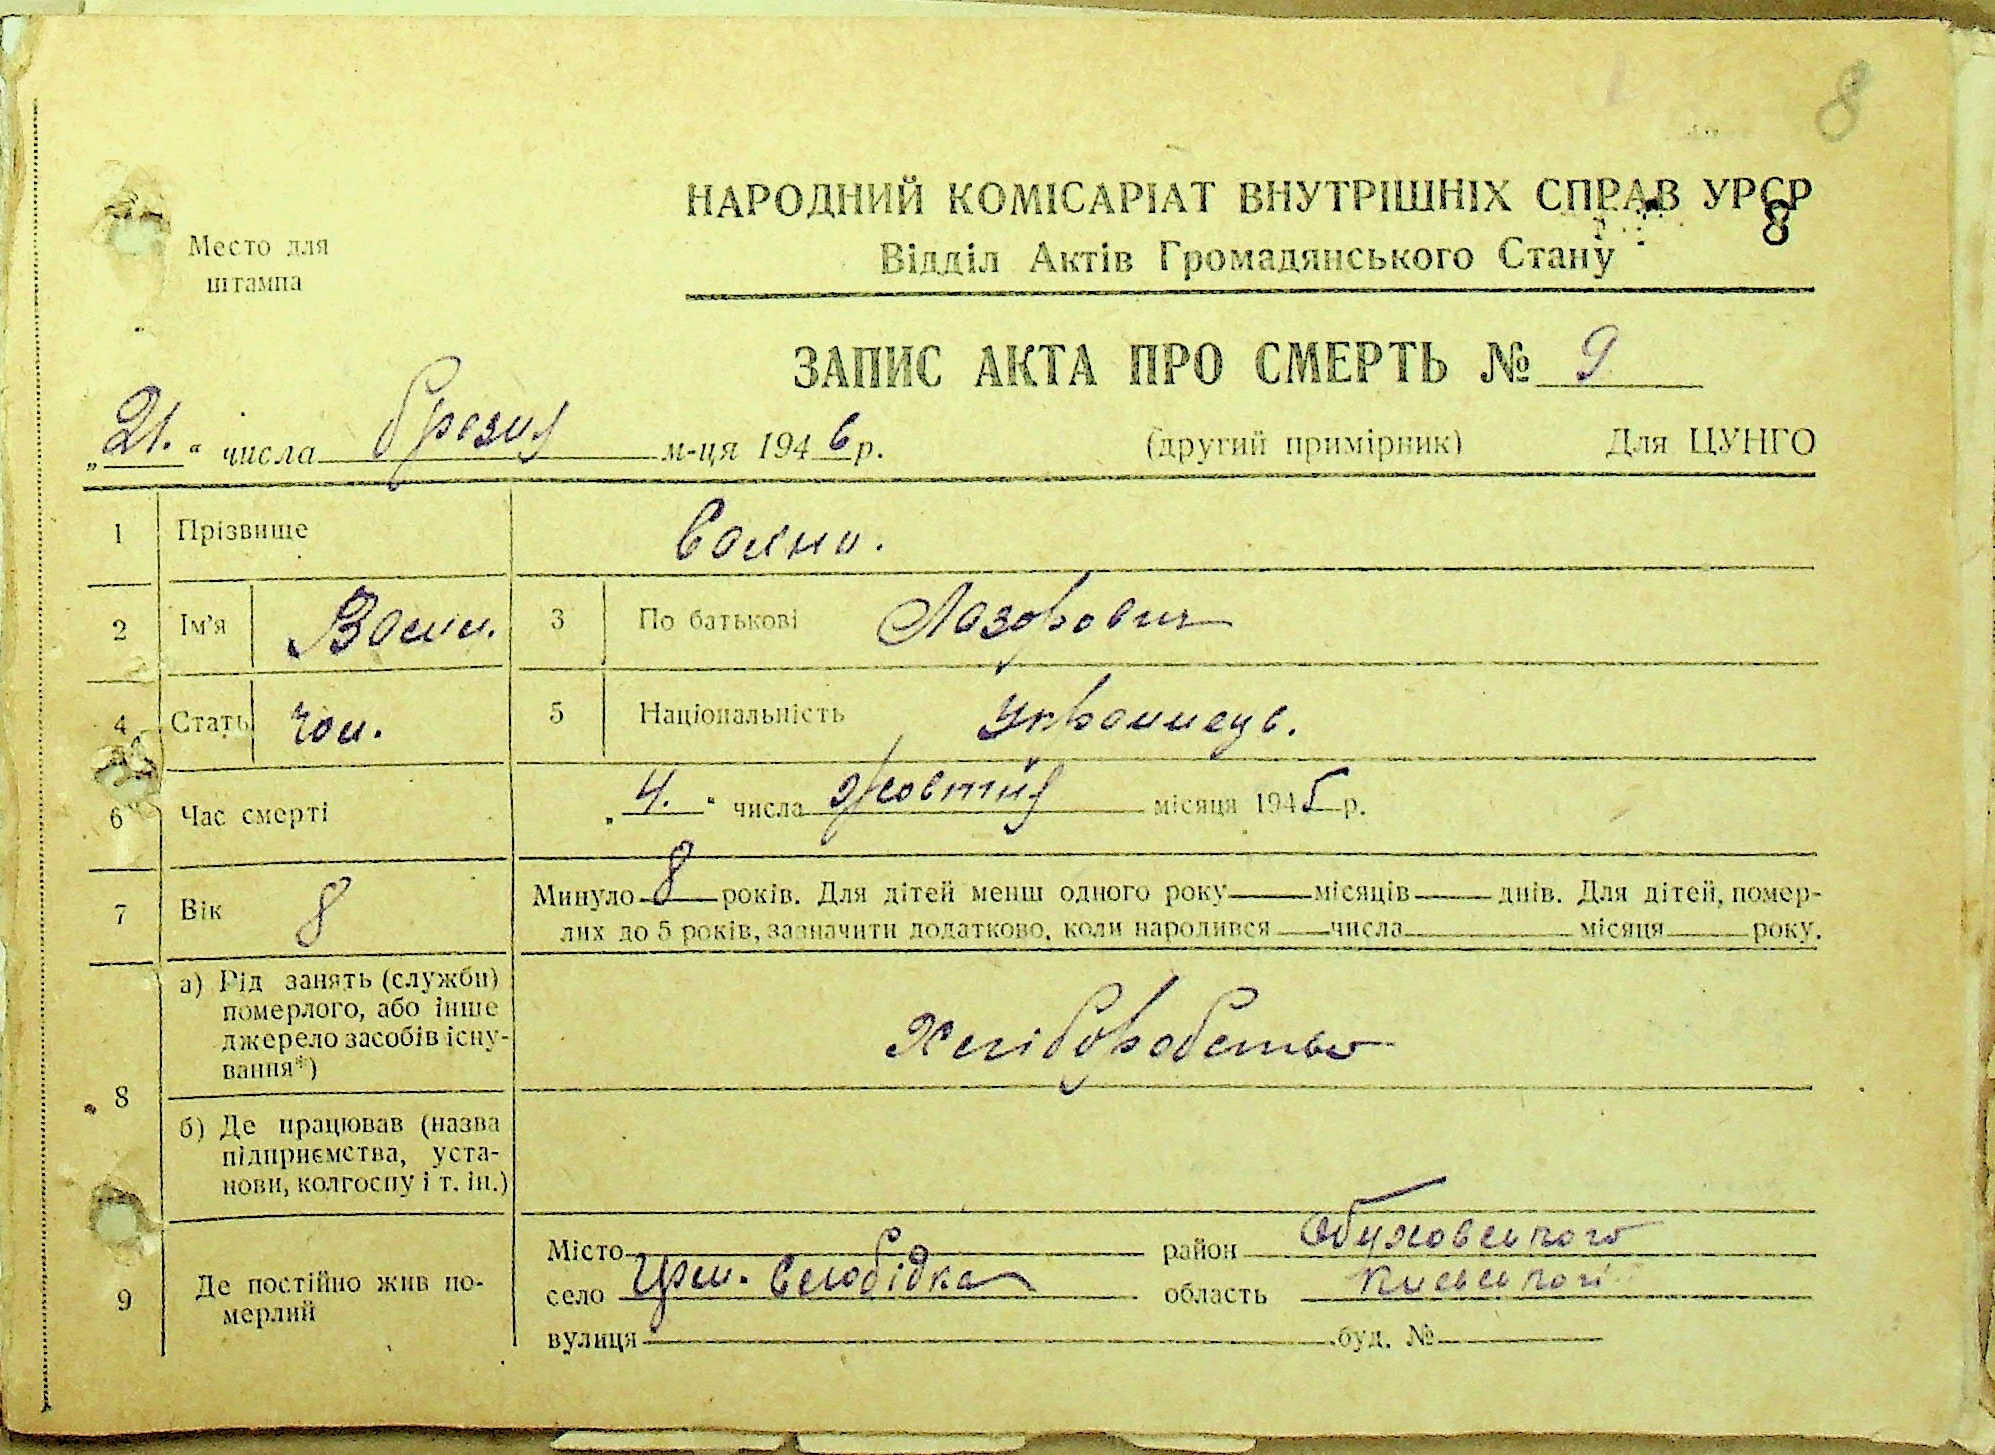 8
НАРОДНИЙ КОМІСАРІАТ ВНУТРІШНІХ СПРАВ УРСР
8
Место для
штампа
Відділ Актів Громадянського Стану
ЗАПИС АКТА ПРО СМЕРТЬ № 9
„21.“ числа брезня м-ця 1946 р. (другий примірник) Для ЦУНГО
1 Прізвище
2 Ім'я 3 По батькові Лазорович
4 Стать чол. 5 Національність Українець.
6 Час смерті „4.“ числа жовтня місяця 1945 р.
7 Вік 8 Минуло 8 років. Для дітей менш одного року — місяців — днів. Для дітей, помер-
лих до 5 років, зазначити додатково, коли народився — числа — місяця — року.
8 а) Рід занять (служби)
померлого, або інше
джерело засобів існу-
вання*)
Хліборобство
б) Де працював (назва
підприємства, уста-
нови, колгоспу і т. ін.)
9 Де постійно жив по-
мерлий
Місто район Обуховського
село Слобідка область Київської
вулиця буд. №